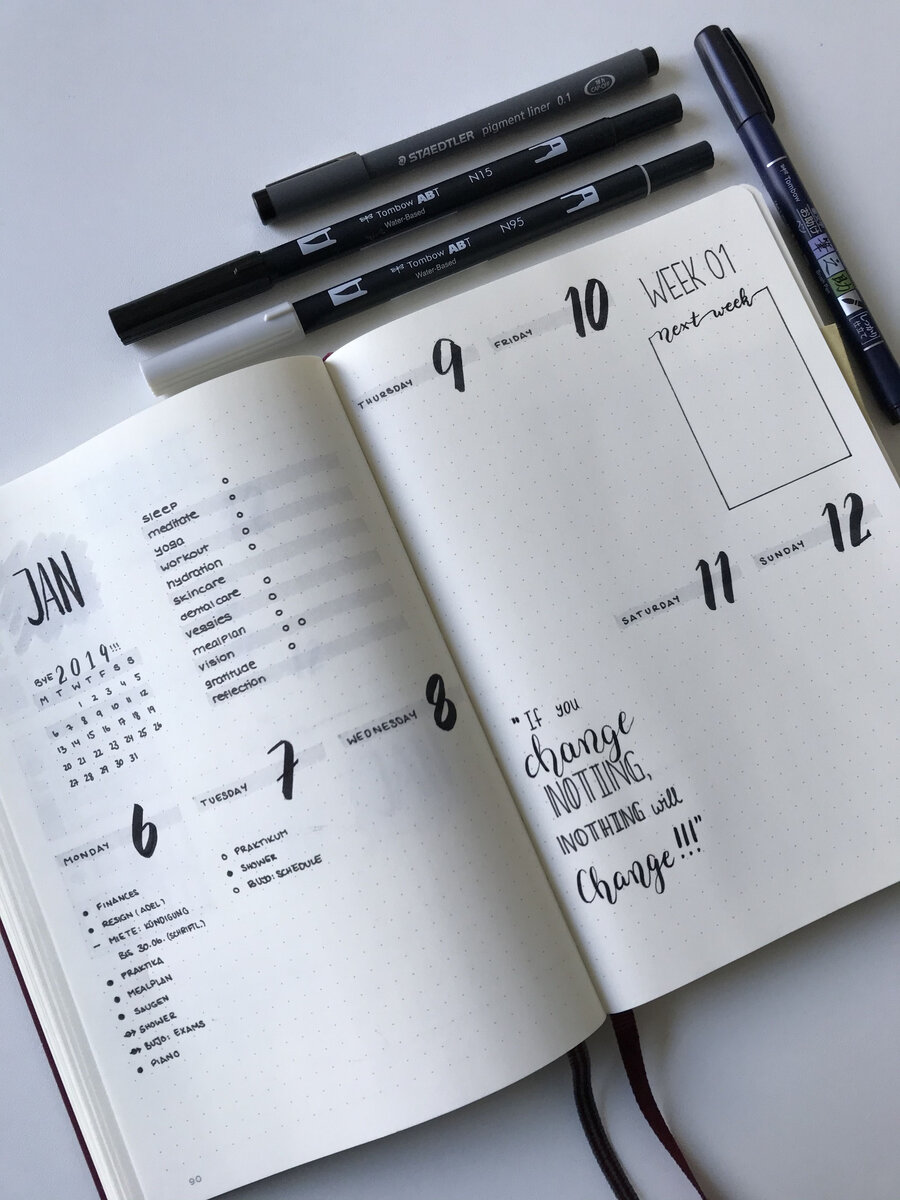 STAEDTLER pigment liner 0.1
CAP-OFF
Tombow ABT N15
Water-Based
Tombow ABT N95
Water-Based
Tombow
筆之助
しっかり
仕立て
JAN
BYE 2019!!!
M T W T F S S
1 2 3 4 5
6 7 8 9 10 11 12
13 14 15 16 17 18 19
20 21 22 23 24 25 26
27 28 29 30 31
sleep
meditate
yoga
workout
hydration
skincare
dental care
veggies
mealplan
vision
gratitude
reflection
MONDAY 6
FINANCES
RESIGN (ADEL)
– MIETE: KÜNDIGUNG
BIS 30.06. (SCHRIFTL.)
PRAKTIKA
MEALPLAN
SAUGEN
SHOWER
BUJO: EXAMS
PIANO
TUESDAY 7
PRAKTIKUM
SHOWER
BUJO: SCHEDULE
WEDNESDAY 8
90
THURSDAY 9
FRIDAY 10
WEEK 01
next week
SATURDAY 11
SUNDAY 12
"If you
change
NOTTING,
NOTHING will
Change!!!"